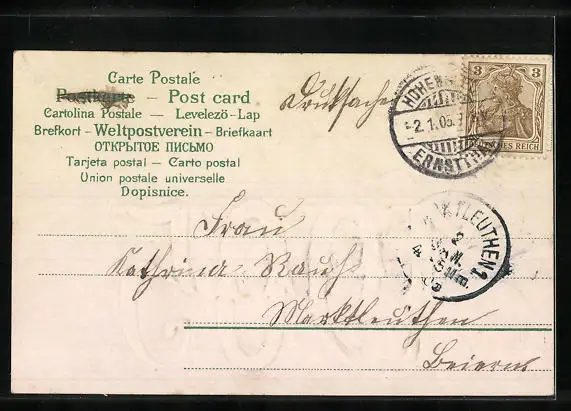 Carte Postale
Postkarte — Post card
Cartolina Postale — Levelező-Lap
Brefkort - Weltpostverein - Briefkaart
ОТКРЫТОЕ ПИСЬМО
Tarjeta postal — Carto postal
Union postale universelle
Dopisnice.
Drucksache
HOHEN
2.1.05.
ERNSTTH
3 3
DEUTSCHES REICH
MARKTLEUTHEN
2
JAN.
Nm.
05
Frau
Kathrina Rauh
Marktleuthen
Beiern